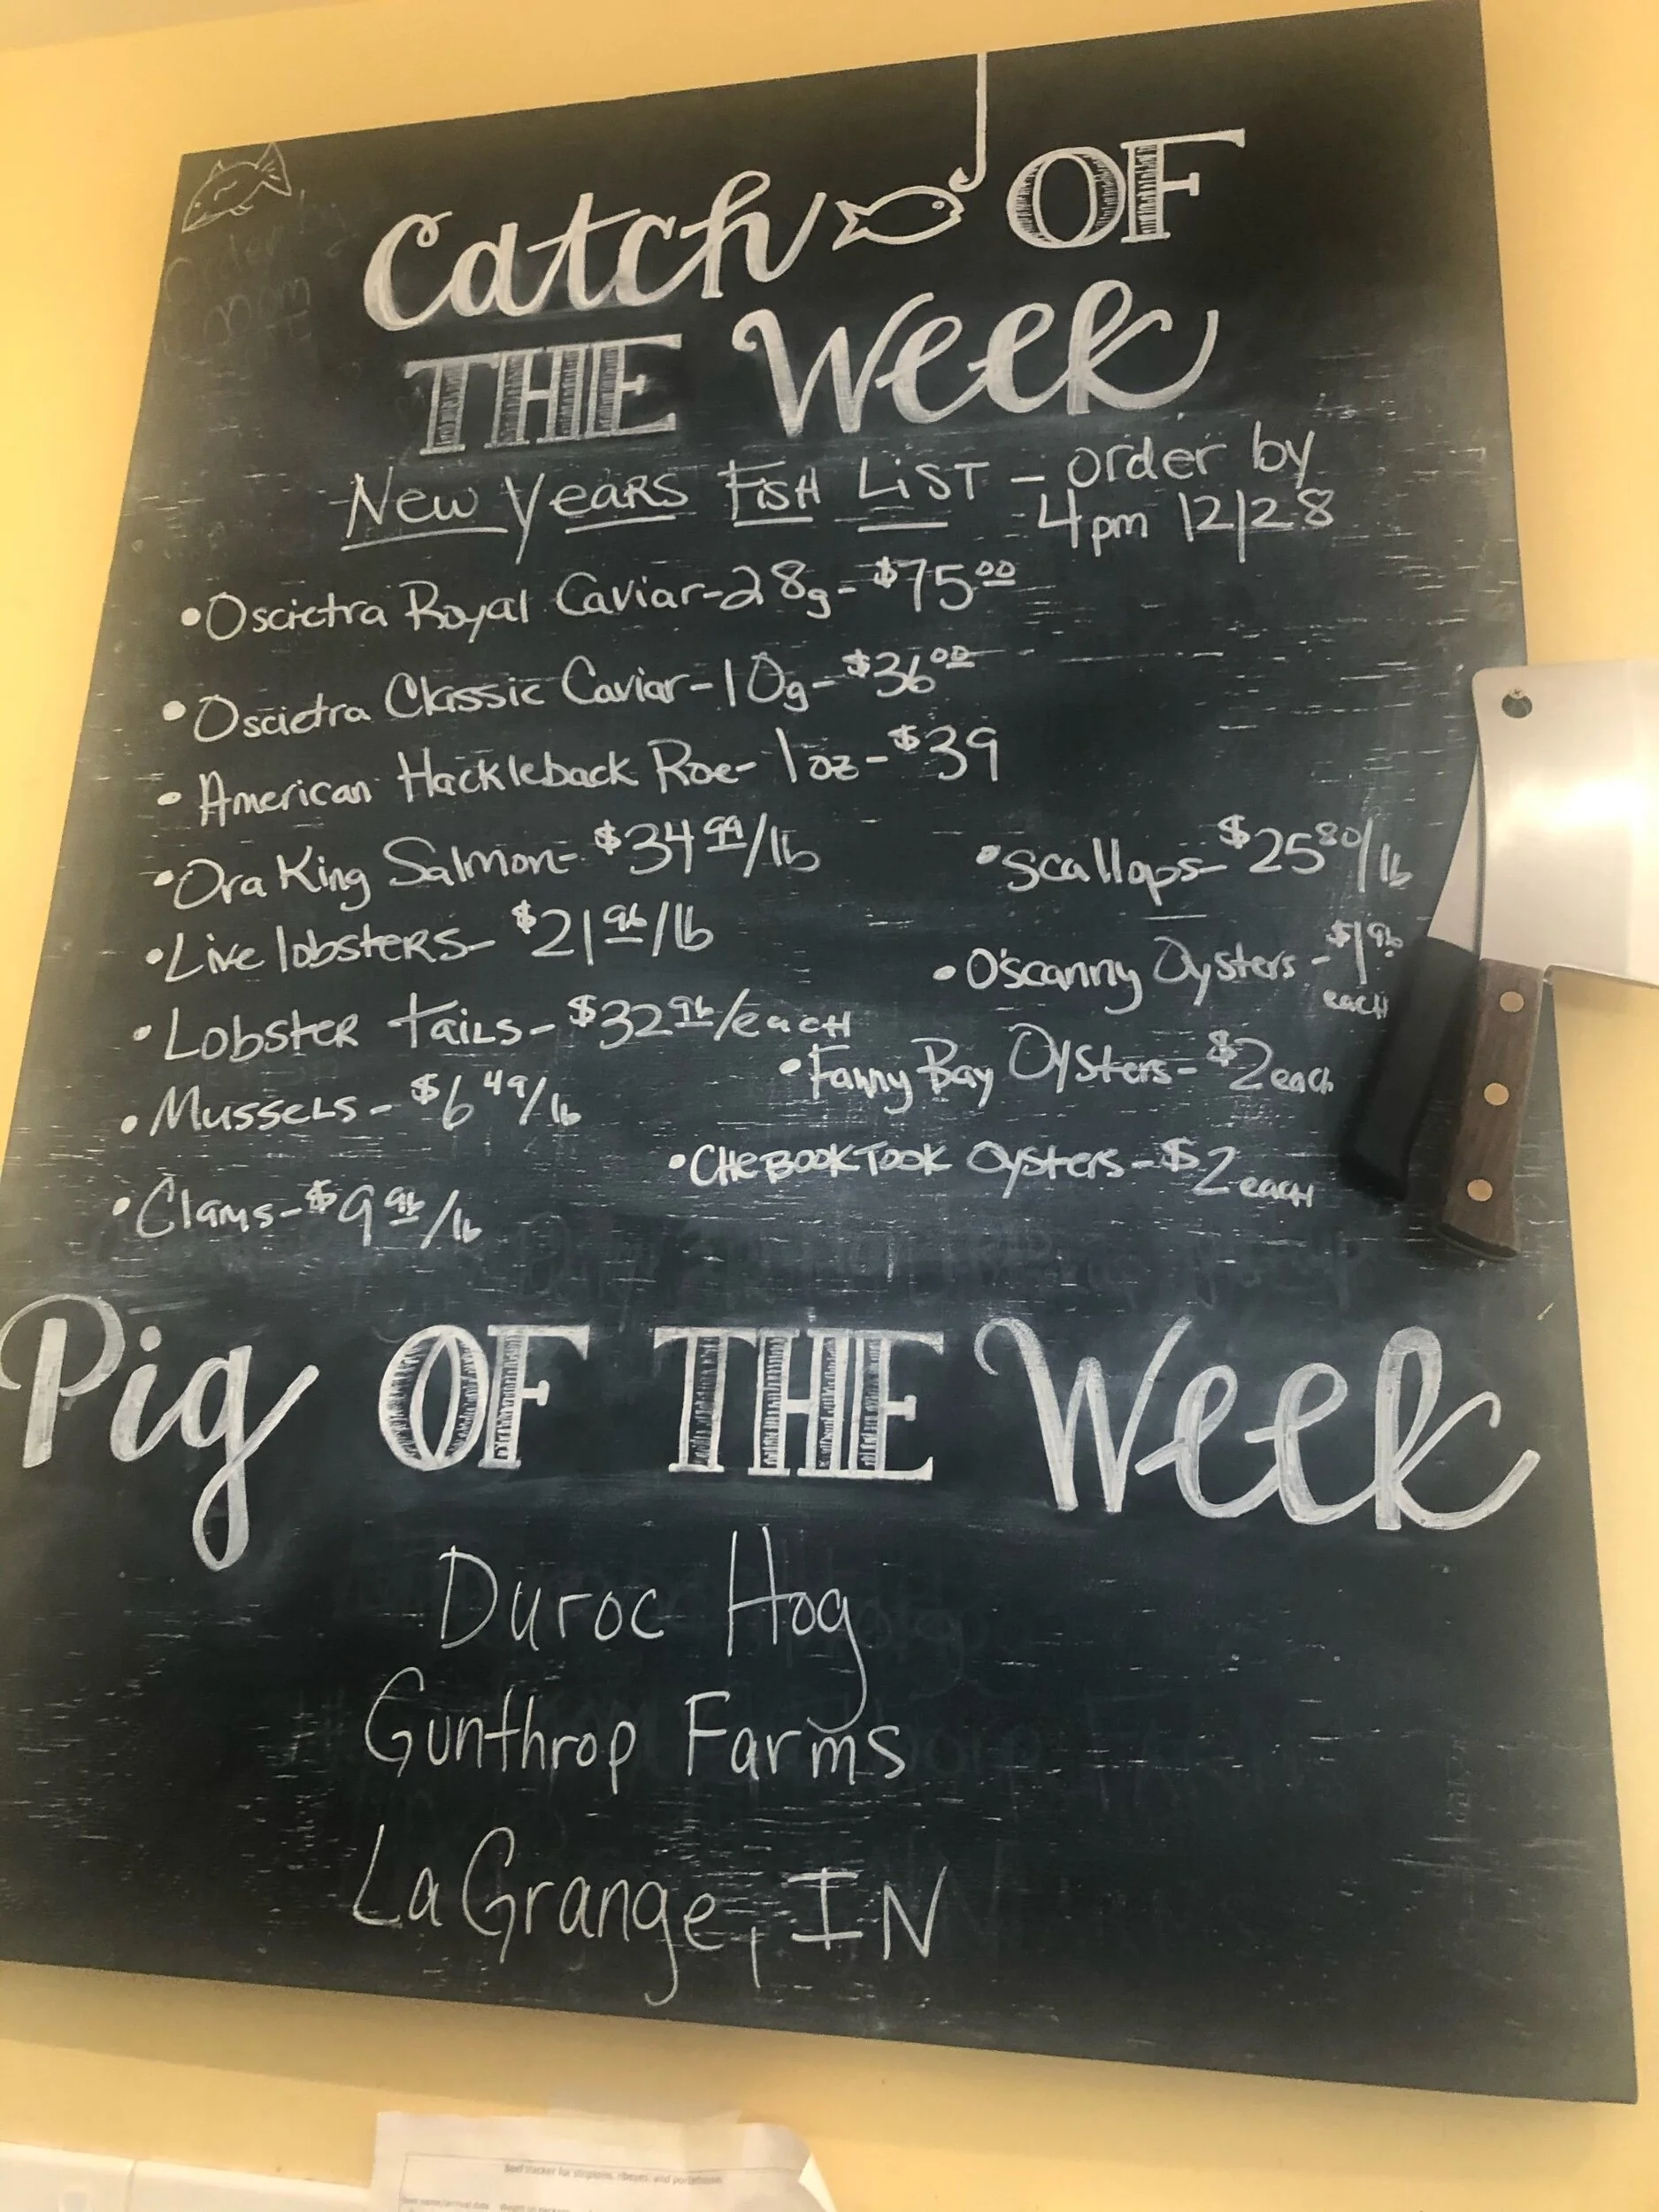 Catch OF
THE Week
New Years Fish List - order by
4pm 12/28
•Oscietra Royal Caviar-28g-$75.00
•Oscietra Classic Caviar-10g-$36.00
•American Hackleback Roe-1oz-$39
•Ora King Salmon-$34.99/lb
•Live lobsters-$21.96/lb
•Lobster Tails-$32.96/each
•Mussels-$6.49/lb
•Clams-$9.96/lb
•Scallops-$25.80/lb
•O'scanny Oysters-$1.96
each
•Fanny Bay Oysters-$2 each
•CHEBOOKTOOK Oysters-$2 each
Pig OF THE Week
Duroc Hog
Gunthrop Farms
LaGrange, IN
Beef tracker for striploins, ribeyes, and porterhouses